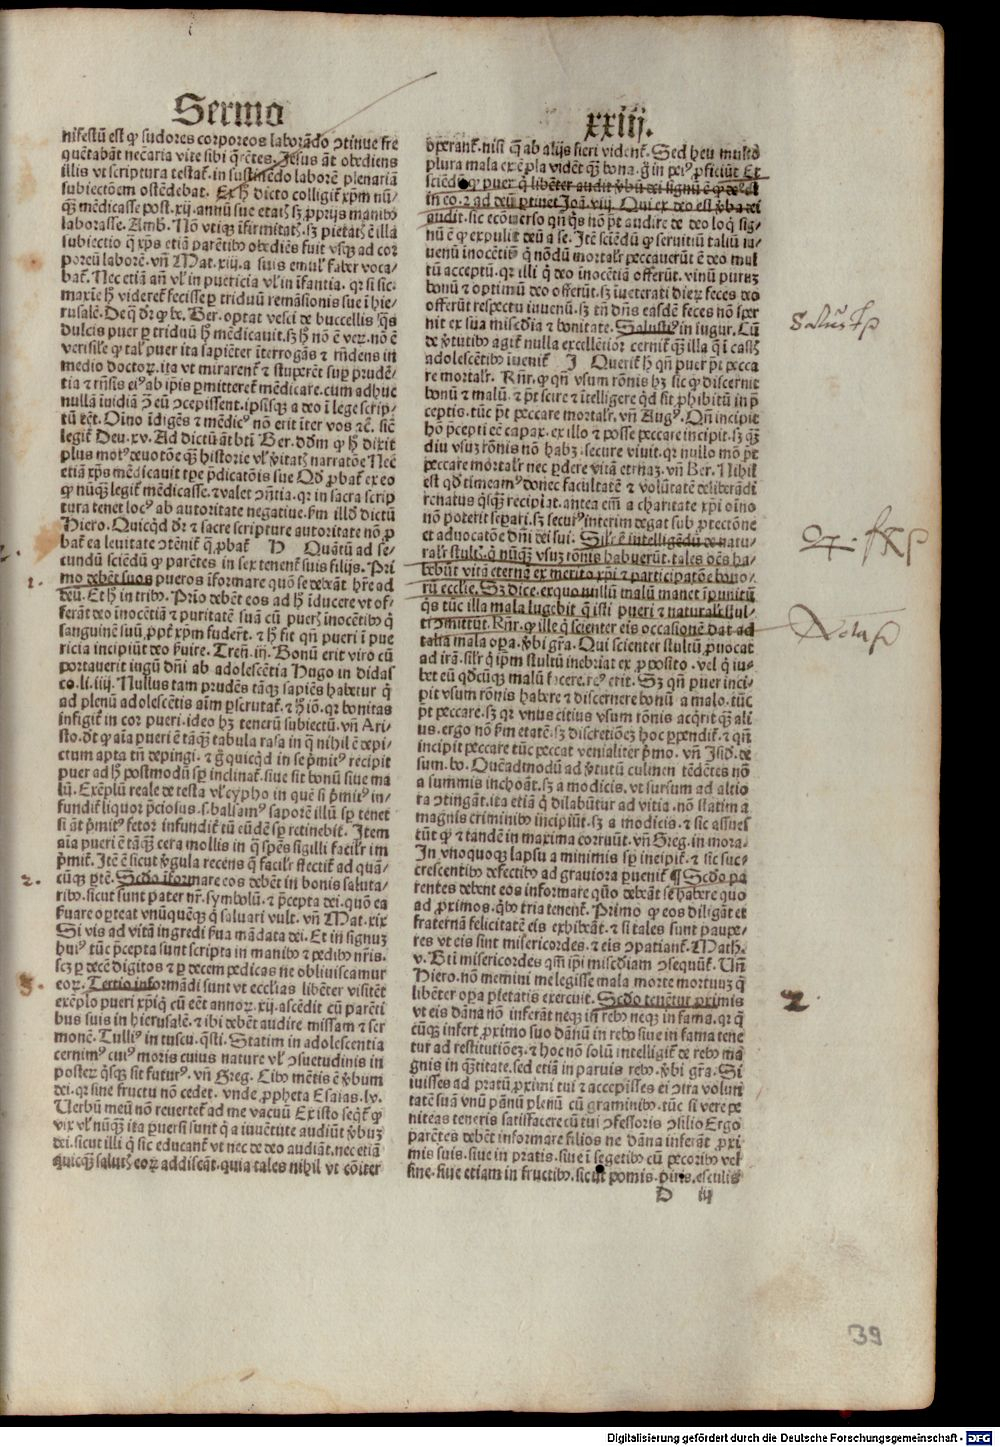 Sermo
xxiij.
nifestũ est ꝙ sudores corporeos laborãdo ↄtinue fre
quẽtabãt necãria vite sibi q̃rẽtes. Jesus ãt obediens
illis vt scriptura testat̃. in sustinẽdo laborẽ plenariã
subiectõem ostẽdebat. Ex h̃ dicto colligit̃ xp̃m nũ/
q̃ꝫ mẽdicasse post .xij. annũ sue etatꝭ sꝫ ꝓprijs manibꝰ
laborasse. Amb. Nõ vtiqꝫ ĩfirmitatꝭ. sꝫ pietatꝭ ẽ illa
subiectio q̃ xp̃s etiã parẽtibꝰ obediẽs fuit vsqꝫ ad cor
poreũ laborẽ. vñ Mat. xiij. a suis emul̃ faber voca/
bat̃. Nec etiã añ vl̃ in puericia vl̃ in ĩfantia. qꝛ si sic.
maxĩe h̃ videret̃ fecisse ꝑ triduũ remãsionis sue ĩ hie/
rusalẽ. De q̃ dr̃ ꝙ bt̃. Ber. optat vesci de buccellis ip̃s
dulcis puer ꝑ triduũ h̃ mẽdicauit. sꝫ h̃ nõ ẽ veꝝ. nõ ẽ
verisile ꝙ tal̃ puer ita sapiẽter ĩterrogãs ⁊ rñdens in
medio doctoꝝ. ita vt mirarent̃ ⁊ stuperẽt suꝑ prudẽ/
tia ⁊ rñsis eiꝰ ab ip̃is ꝑmitteret̃ mẽdicare. cum adhuc
nullã ĩuidiã ↄ̃ eũ ↄcepissent. ipsisqꝫ a deo ĩ lege scrip/
tũ eẽt. Oĩno ĩdigẽs ⁊ mẽdicꝰ nõ erit ĩter vos ⁊c̃. sic̃
legit̃ Deu. xv. Ad dictũ ãt bti Ber. dd̃m ꝙ h̃ dixit
plus motꝰ deuotõe q̃ꝫ historie vl̃ ṽitatꝭ narratõe Nec̃
etiã xp̃s mẽdicauit tp̃e p̃dicatõis sue Qd̃ ꝓbat̃ ex eo
ꝙ nũqꝫ legit̃ mẽdicasse. ⁊ valet ↄñtia. qꝛ in sacra scrip
tura tenet locꝰ ab autoritate negatiue. ꝑm illd̃ dictũ
Hiero. Quicq̃d dr̃ ⁊ sacre scripture autoritate nõ ꝓ
bat̃ ea leuitate ↄtẽnit̃ q̃ ꝓbat̃ H Quãtũ ad se/
cundũ sciẽdũ ꝙ parẽtes in sex tenent̃ suis filijs. Pri
mo debẽt suos pueros ĩformare quõ se debeãt hr̃e ad
deũ. Et h̃ in tribꝰ. Prĩo debẽt eos ad h̃ ĩducere vt of/
ferãt deo ĩnocẽtiã ⁊ puritatẽ suã cũ puerꝭ ĩnocẽtibꝰ q̃
sanguinẽ suũ ꝓpt̃ xp̃m fuder̃t. ⁊ h̃ fit qñ pueri ĩ pue
ricia incipiũt deo ẜuire. Tren̄. iij. Bonũ erit viro cũ
portauerit iugũ dñi ab adolescẽtia Hugo in didas
co. li. iiij. Nullus tam prudẽs tãqꝫ sapiẽs habetur q̃
ad plenũ adolescẽtis aĩm ꝑscrutat̃. ⁊ h̃ iõ. qꝛ bonitas
infigit̃ in cor pueri. ideo hꝫ tenerũ subiectũ. vñ Ari/
sto. dt̃ ꝙ aĩa pueri ẽ tãqꝫ tabula rasa in q̃ nihil ẽ depi/
ctum apta tñ depingi. ⁊ g̃ quicq̃d in se p̃mitꝰ recipit
puer ad h̃ postmodũ sꝑ inclinat̃. siue sit bonũ siue ma
lũ. Exẽplũ reale de testa vl̃ cypho in quẽ si p̃mitꝰ in/
fundit̃ liquor p̃ciosus .s. balsamꝰ saporẽ illũ sꝑ tenet
si ãt p̃mitꝰ fetor infundit̃ tũ eũdẽ sꝑ retinebit. Item
aĩa pueri ẽ tãqꝫ cera mollis in q̃ sp̃es sigilli facil̃r im
p̃mit̃. Itẽ ẽ sicut ṽgula recens q̃ facil̃r flectit̃ ad quã/
cũqꝫ ꝑtẽ. Scd̃o ĩformare eos debẽt in bonis saluta/
ribꝰ. sicut sunt pater nr̃. symbolũ. ⁊ p̃cepta dei. quõ ea
ẜuare oꝑteat vnũquẽqꝫ q̃ saluari vult. vñ Mat. xix
Si vis ad vitã ingredi ẜua mãdata dei. Et in signuꝫ
huiꝰ tũc p̃cepta sunt scripta in manibꝰ ⁊ pedibꝰ nr̃is.
scꝫ ꝑ decẽ digitos ⁊ ꝑ decem pedicas ne obliuiscamur
eoꝝ. Tertio informãdi sunt vt ecclĩas libẽter visitẽt
exẽplo pueri xp̃i q̃ cũ eẽt annoꝝ .xij. ascẽdit cũ parẽti
bus suis in hierusalẽ. ⁊ ibi debẽt audire missam ⁊ ser
monẽ. Tulliꝰ in tuscu. q̃sti. Statim in adolescentia
cernimꝰ cuiꝰ moris cuius nature vl̃ ↄsuetudinis in
posteꝝ q̃sqꝫ sit futurꝰ. vñ Greg. Cibꝰ mẽtis ẽ ṽbum
dei. qꝛ sine fructu nõ cedet. vnde ꝓpheta Esaias. lv.
Uerbũ meũ nõ reuertet̃ ad me vacuũ Ex isto seq̃t̃ ꝙ
vix vl̃ nũqꝫ ita ꝑuersi sunt q̃ a iuuẽtute audiũt ṽbuꝫ
dei. sicut illi q̃ sic educant̃ vt nec de deo audiãt. nec etiã
quicq̃ꝫ salutꝭ eoꝝ addiscãt. quia tales nihil vt cõiter
oꝑerant̃. nisi q̃ ab alijs fieri vident̃. Sed heu multo
plura mala exẽpla vidẽt q̃ꝫ bona. g̃ in peiꝰ ꝓficiũt Ex
sciẽdũ ꝙ puer q̃ libẽter audit ṽbũ dei signũ ẽ ꝙ deꝰ est
in eo. ⁊ ad deũ ꝑtinet Joã. viij. Qui ex deo est ṽba dei
audit. sic ecõuerso qñ q̃s nõ pt̃ audire de deo loq̃ sig/
nũ ẽ ꝙ expulit deũ a se. Itẽ sciẽdũ ꝙ seruitiũ taliũ iu/
uenũ inocẽtiũ q̃ nõdũ mortal̃r peccauerũt ẽ deo mul
tũ acceptũ. qꝛ illi q̃ deo inocẽtiã offerũt. vinũ puruꝫ
bonũ ⁊ optimũ deo offerũt. sꝫ ĩueterati dieꝝ feces deo
offerũt respectu iuuenũ. sꝫ tñ dñs easdẽ feces nõ sper
nit ex sua mĩsedĩa ⁊ bonitate. Salustiꝰ in iugur. Cũ
de ṽtutibꝰ agit̃ nulla excellẽtior cernit̃ q̃ꝫ illa q̃ ĩ castꝭ
adolescẽtibꝰ ĩuenit̃ J Querit̃ h̃ qñ puer pt̃ pecca
re mortal̃r. Rñr. ꝙ qñ vsum rõnis hꝫ sic ꝙ discernit
bonũ ⁊ malũ. ⁊ pt̃ scire ⁊ ĩtelligere qd̃ sit ꝓhibitũ in p̃
ceptis. tũc pt̃ peccare mortal̃r. vñ Augꝰ. Qñ incipit
hõ p̃cepti eẽ capax. ex illo ⁊ posse peccare incipit. sꝫ q̃ꝫ
diu vsuꝫ rõnis nõ habꝫ. secure viuit. qꝛ nullo mõ pt̃
peccare mortal̃r nec ꝑdere vitã eternaꝫ. vñ Ber. Nihil
est qd̃ timeamꝰ donec facultatẽ ⁊ volũtatẽ deliberãdi
renatus q̃sqꝫ recipiat. antea eñi a charitate xp̃i oĩno
nõ poterit seꝑari. sꝫ securꝰ interim degat sub ꝓtectõne
et aduocatõe dñi dei sui. Sil̃r ẽ intelligẽdũ de natu/
ral̃r stultꝭ. q̃ nũqꝫ vsuꝫ rõnis habuerũt. tales oẽs ha/
bebũt vitã eternã ex merito xp̃i ⁊ participatõe bono/
rũ ecclĩe. Sꝫ dice. exquo nullũ malũ manet ĩpunitũ
q̃s tũc illa mala lugebit q̃ isti pueri ⁊ natural̃r stul/
ti ↄmittũt. Rñr. ꝙ ille q̃ scienter eis occasionẽ dat ad
talia mala oꝑa. ṽbi gr̃a. Qui scienter stultũ ꝓuocat
ad irã. sil̃r q̃ ip̃m stultũ inebriat ex ꝓposito. vel q̃ iu/
bet eũ qd̃cũqꝫ malũ facere. reꝰ erit. Sꝫ qñ puer inci/
pit vsum rõnis habere ⁊ discernere bonũ a malo. tũc
pt̃ peccare. sꝫ qꝛ vnus citius vsum rõnis acq̃rit q̃ꝫ ali
us. ergo nõ ẜm etatẽ. sꝫ discretiõeꝫ hoc ꝑpendit̃. ⁊ qñ
incipit peccare tũc peccat venialiter p̃mo. vñ Isid. de
sum. bo. Quẽadmodũ ad ṽtutũ culmen tẽdẽtes nõ
a summis inchoãt. sꝫ a modicis. vt sursum ad altio
ra ↄtingãt. ita etiã q̃ dilabũtur ad vitia. nõ statim a
magnis criminibꝰ incipiũt. sꝫ a modicis. ⁊ sic assues
tũt ꝙ ⁊ tandẽ in maxima corruũt. vñ Greg. in mora.
In vnoquoqꝫ lapsu a minimis sꝑ incipit̃. ⁊ sic suc/
crescentibꝰ defectibꝰ ad grauiora ꝑuenit̃ ¶ Scd̃o pa
rentes debent eos informare quõ debeãt se habere quo
ad ꝓximos. q̃bꝰ tria tenent̃. Primo ꝙ eos diligãt et
fraternã felicitatẽ eis exhibeãt. ⁊ si tales sunt paupe/
res vt eis sint misericordes. ⁊ eis ↄpatiant̃. Math.
v. Bti misericordes qm̃ ip̃i misedĩam ↄsequũt̃. Uñ
Hiero. nõ memini me legisse mala morte mortuuꝫ q̃
libẽter oꝑa pietatis exercuit. Scd̃o tenẽtur ꝓximis
vt eis dãna nõ inferãt neqꝫ in rebꝰ neqꝫ in fama. qꝛ q̃
cũqꝫ infert ꝓximo suo dãnũ in rebꝰ siue in fama tene
tur ad restitutiõeꝫ. ⁊ hoc nõ solũ intelligit̃ de rebꝰ ma
gnis in q̃titate. sed etiã in paruis rebꝰ. ṽbi gr̃a. Si
iuisses ad pratũ ꝓximi tui ⁊ accepisses ei ↄtra volun
tatẽ suã vnũ pãnũ plenũ cũ graminibꝰ. tũc si vere pe
niteas teneris satisfacere cũ tui ↄfessoris ↄsilio Ergo
parẽtes debẽt informare filios ne dãna inferãt ꝓxi
mis suis. siue in pratis. siue ĩ segetibꝰ cũ pecoribꝰ vel
sine. siue etiam in fructibꝰ. sicut pomis. piris. esculis
D iij
1.
2.
3.
2.
39
Digitalisierung gefördert durch die Deutsche Forschungsgemeinschaft - DFG